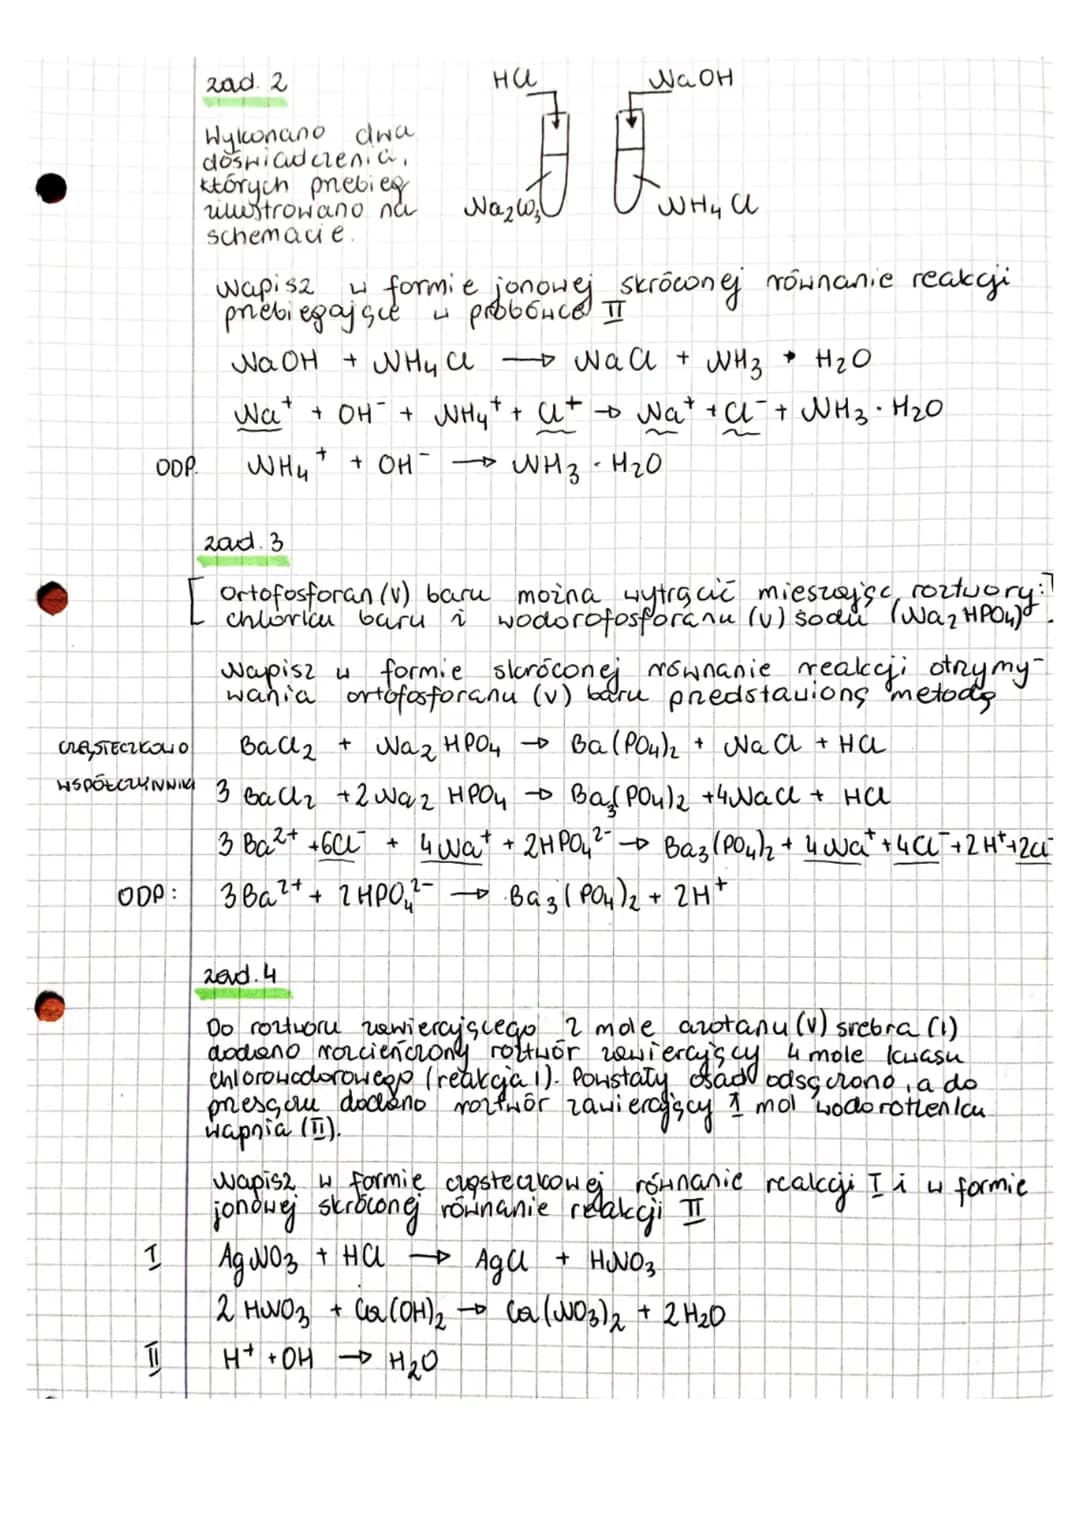 zad. 2
HCl
NaOH
Wykonano dwa
doświadczenia,
których przebieg
zilustrowano na
schemacie.
Na2CO3
NH4Cl
Napisz w formie jonowej skróconej równanie reakcji
przebiegające w probówce II
NaOH + NH4Cl → NaCl + NH3 • H2O
Na⁺ + OH⁻ + NH4⁺ + Cl⁺ → Na⁺ + Cl⁻ + NH3 · H2O
ODP. NH4⁺ + OH⁻ → NH3 · H2O
zad. 3
[ Ortofosforan (V) baru można wytrącić mieszając roztwory: ]
chlorku baru i wodorofosforanu (V) sodu (Na2HPO4).
Napisz w formie skróconej równanie reakcji otrzymy-
wania ortofosforanu (V) baru przedstawioną metodą
CZĄSTECZKOWO BaCl2 + Na2HPO4 → Ba(PO4)2 + NaCl + HCl
WSPÓŁCZYNNIKI 3 BaCl2 + 2 Na2 HPO4 → Ba3(PO4)2 + 4NaCl + HCl
3 Ba²⁺ + 6Cl⁻ + 4 Na⁺ + 2HPO4²⁻ → Ba3(PO4)2 + 4 Na⁺ + 4Cl⁻ + 2 H⁺ + 2Cl⁻
ODP: 3Ba²⁺ + 2 HPO4²⁻ → Ba3(PO4)2 + 2H⁺
zad. 4
Do roztworu zawierającego 2 mole azotanu (V) srebra (I)
dodano rozcieńczony roztwór zawierający 4 mole kwasu
chlorowodorowego (reakcja I). Powstały osad odsączono, a do
przesączu dodano roztwór zawierający 1 mol wodorotlenku
wapnia (II).
Napisz w formie cząsteczkowej równanie reakcji I i w formie
jonowej skróconej równanie reakcji II
I AgNO3 + HCl → AgCl + HNO3
2 HNO3 + Ca(OH)2 → Ca(NO3)2 + 2 H2O
II H⁺ + OH → H2O